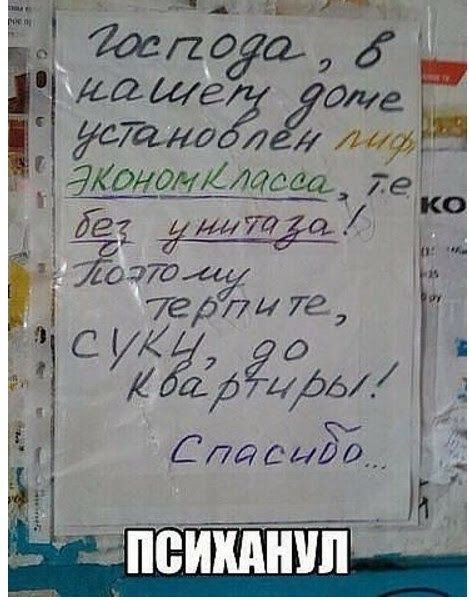 Господа, в
нашем доме
установлен лиф
экономкласса, т.е
без унитаза!
Поэтому
терпите,
суки, до
квартиры!
Спасибо...
КО
ПСИХАНУЛ